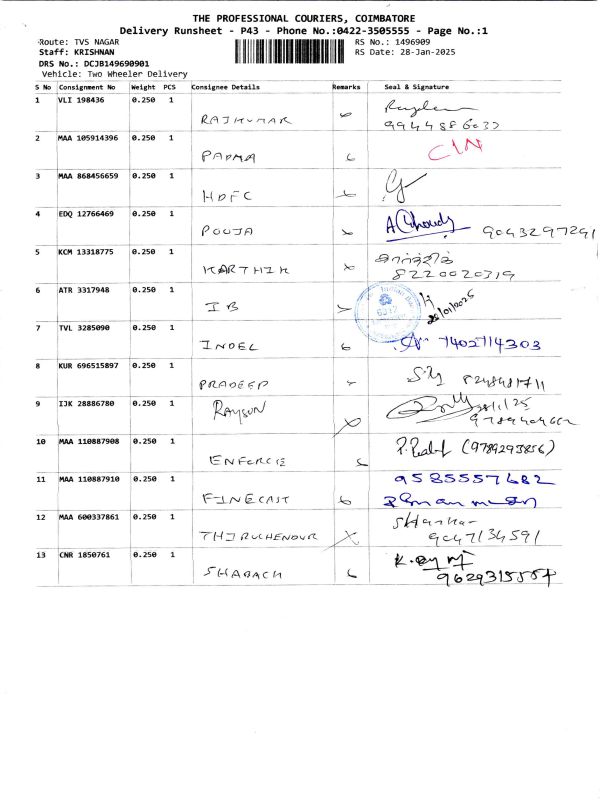 THE PROFESSIONAL COURIERS, COIMBATORE
Delivery Runsheet - P43 - Phone No.:0422-3505555 - Page No.:1
Route: TVS NAGAR RS No.: 1496909
Staff: KRISHNAN RS Date: 28-Jan-2025
DRS No.: DCJB149690901
Vehicle: Two Wheeler Delivery
S No Consignment No Weight PCS Consignee Details Remarks Seal & Signature
1 VLI 198436 0.250 1
RAJKUMAR
2 MAA 105914396 0.250 1
PADMA
3 MAA 868456659 0.250 1
HDFC
4 EDQ 12766469 0.250 1
POOJA 9043297291
5 KCM 13318775 0.250 1 கார்த்திக்
KARTHIK 8220020319
6 ATR 3317948 0.250 1
IB 28/01/2025
7 TVL 3285090 0.250 1
INDEL 7402714303
8 KUR 696515897 0.250 1
PRADEEP
9 IJK 28886780 0.250 1 RAYSON
10 MAA 110887908 0.250 1 (9789293856)
11 MAA 110887910 0.250 1 9585557682
FINECAST
12 MAA 600337861 0.250 1
THIRUCHENDUR 9047134591
13 CNR 1850761 0.250 1